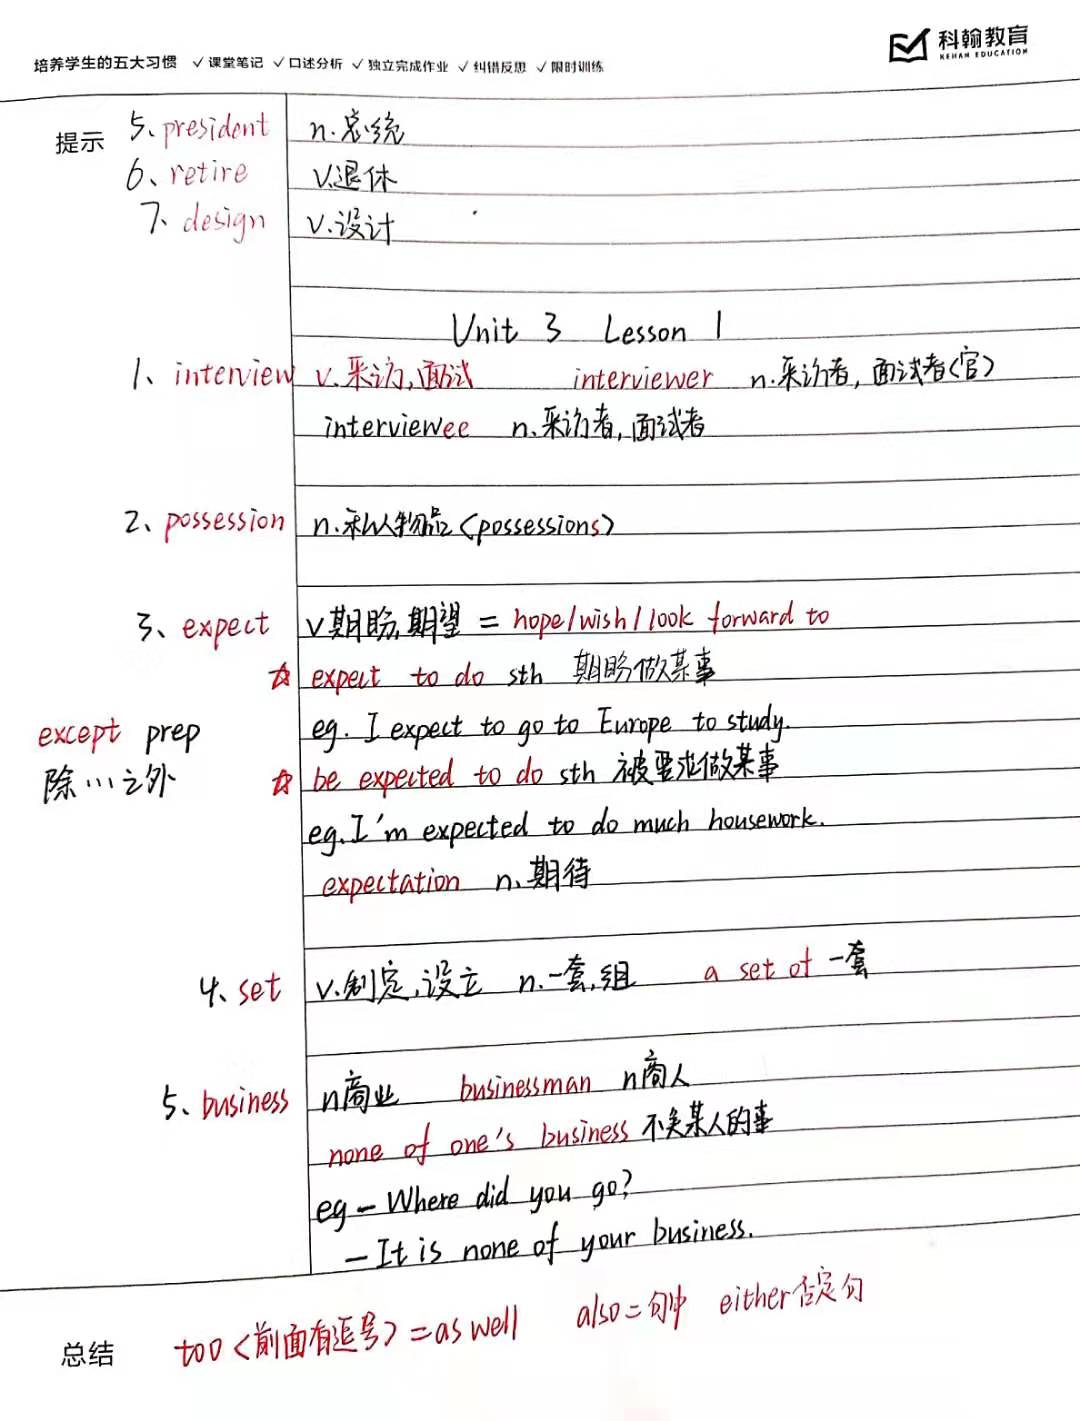 培养学生的五大习惯 ✓课堂笔记 ✓口述分析 ✓独立完成作业 ✓纠错反思 ✓限时训练
科翰教育
KEHAN EDUCATION
提示
5、president n.总统
6、retire v.退休
7、design v.设计
Unit 3 Lesson 1
1、interview v.采访,面试 interviewer n.采访者,面试者(官)
interviewee n.采访者,面试者
2、possession n.私人物品(possessions)
3、expect v期盼,期望 = hope/wish/look forward to
☆ expect to do sth 期盼做某事
except prep eg. I expect to go to Europe to study.
除…之外 ☆ be expected to do sth 被要求做某事
eg.I'm expected to do much housework.
expectation n.期待
4、set v.制定,设立 n.一套,组 a set of 一套
5、business n商业 businessman n商人
none of one's business 不关某人的事
eg – Where did you go?
– It is none of your business.
总结 too<前面有逗号>=as well also=句中 either否定句